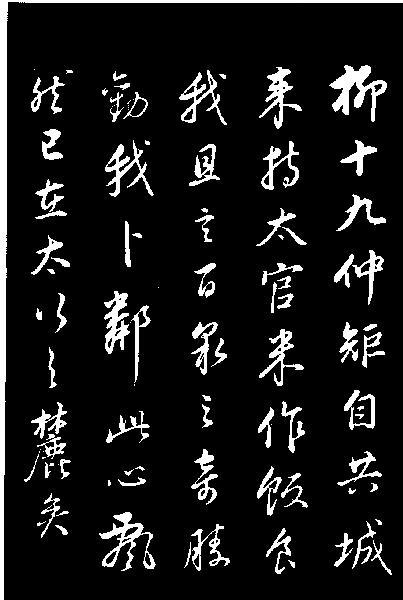 柳十九仲矩自共城
来持太官米作飯食
我且言百泉之奇勝
勸我卜鄰此心飄
然已在太行之麓矣